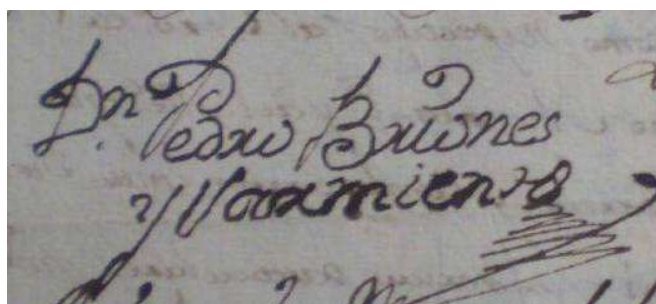 Dn Pedro Briones
y Sarmiento